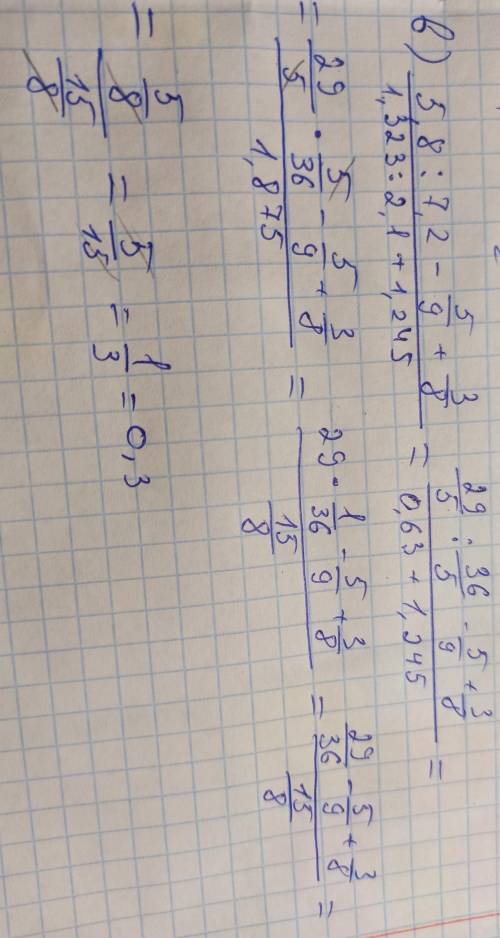 в) (5,8 : 7,2 - 5/9 + 3/8) / (1,323 : 2,1 + 1,245) = (29/5 : 36/5 - 5/9 + 3/8) / (0,63 + 1,245) =
= (29/5 · 5/36 - 5/9 + 3/8) / 1,875 = (29 · 1/36 - 5/9 + 3/8) / (15/8) = (29/36 - 5/9 + 3/8) / (15/8) =
= (5/8) / (15/8) = 5/15 = 1/3 = 0,3